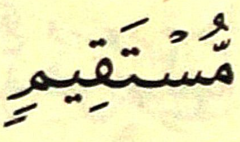 مُّسْتَقِيمٍ